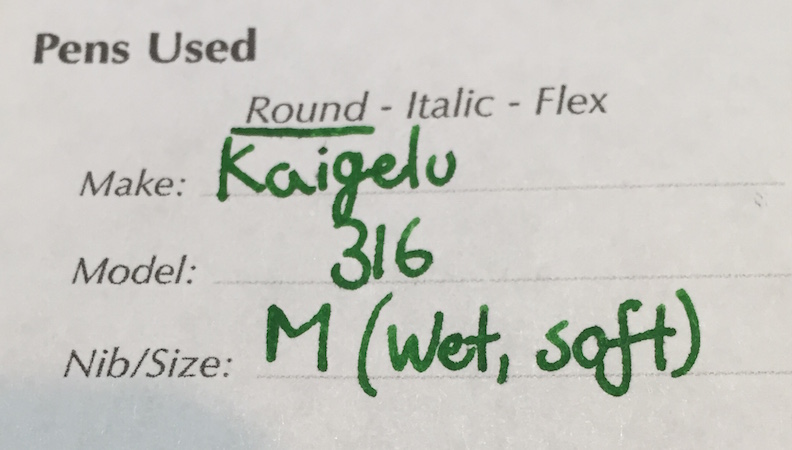 Pens Used
Round - Italic - Flex
Make: Kaigelu
Model: 316
Nib/Size: M (Wet, soft)